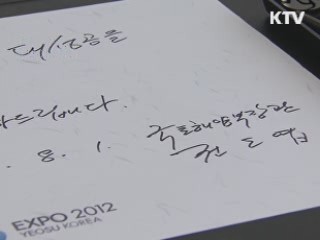 KTV
대성공을
드립니다.
. 8. 1. 국토해양부장관
권도엽
EXPO 2012
YEOSU KOREA